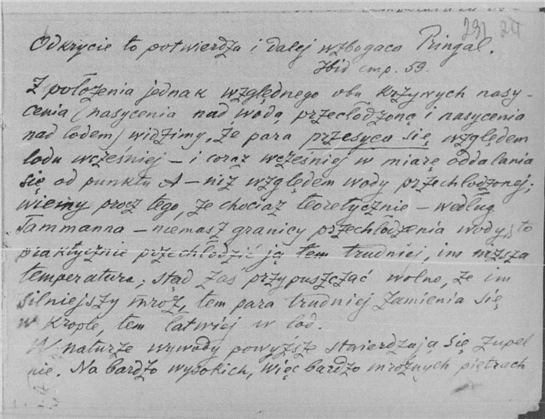 24
Odkrycie to potwierdza i dalej wzbogaca Pringal.
Ibid. стр. 59.
Z położenia jednak względnego obu krzywych nasy-
cenia (nasycenia nad wodą przechłodzoną i nasycenia
nad lodem) widzimy, że para przesyca się względem
lodu wcześniej – i coraz wcześniej w miarę oddalania
się od punktu A – niż względem wody przechłodzonej;
wiemy procz tego, że chociaż teoretycznie – według
Tammanna – niemasz granicy przechłodzenia wody, to
praktycznie przechłodzić ją tem trudniej, im niższa
temperatura; stąd zaś przypuszczać wolno, że im
silniejszy mroz, tem para trudniej zamienia się
w krople, tem łatwiej w lod.
W naturze wywody powyższe stwierdzają się zupeł-
nie. Na bardzo wysokich, więc bardzo mroźnych piętrach